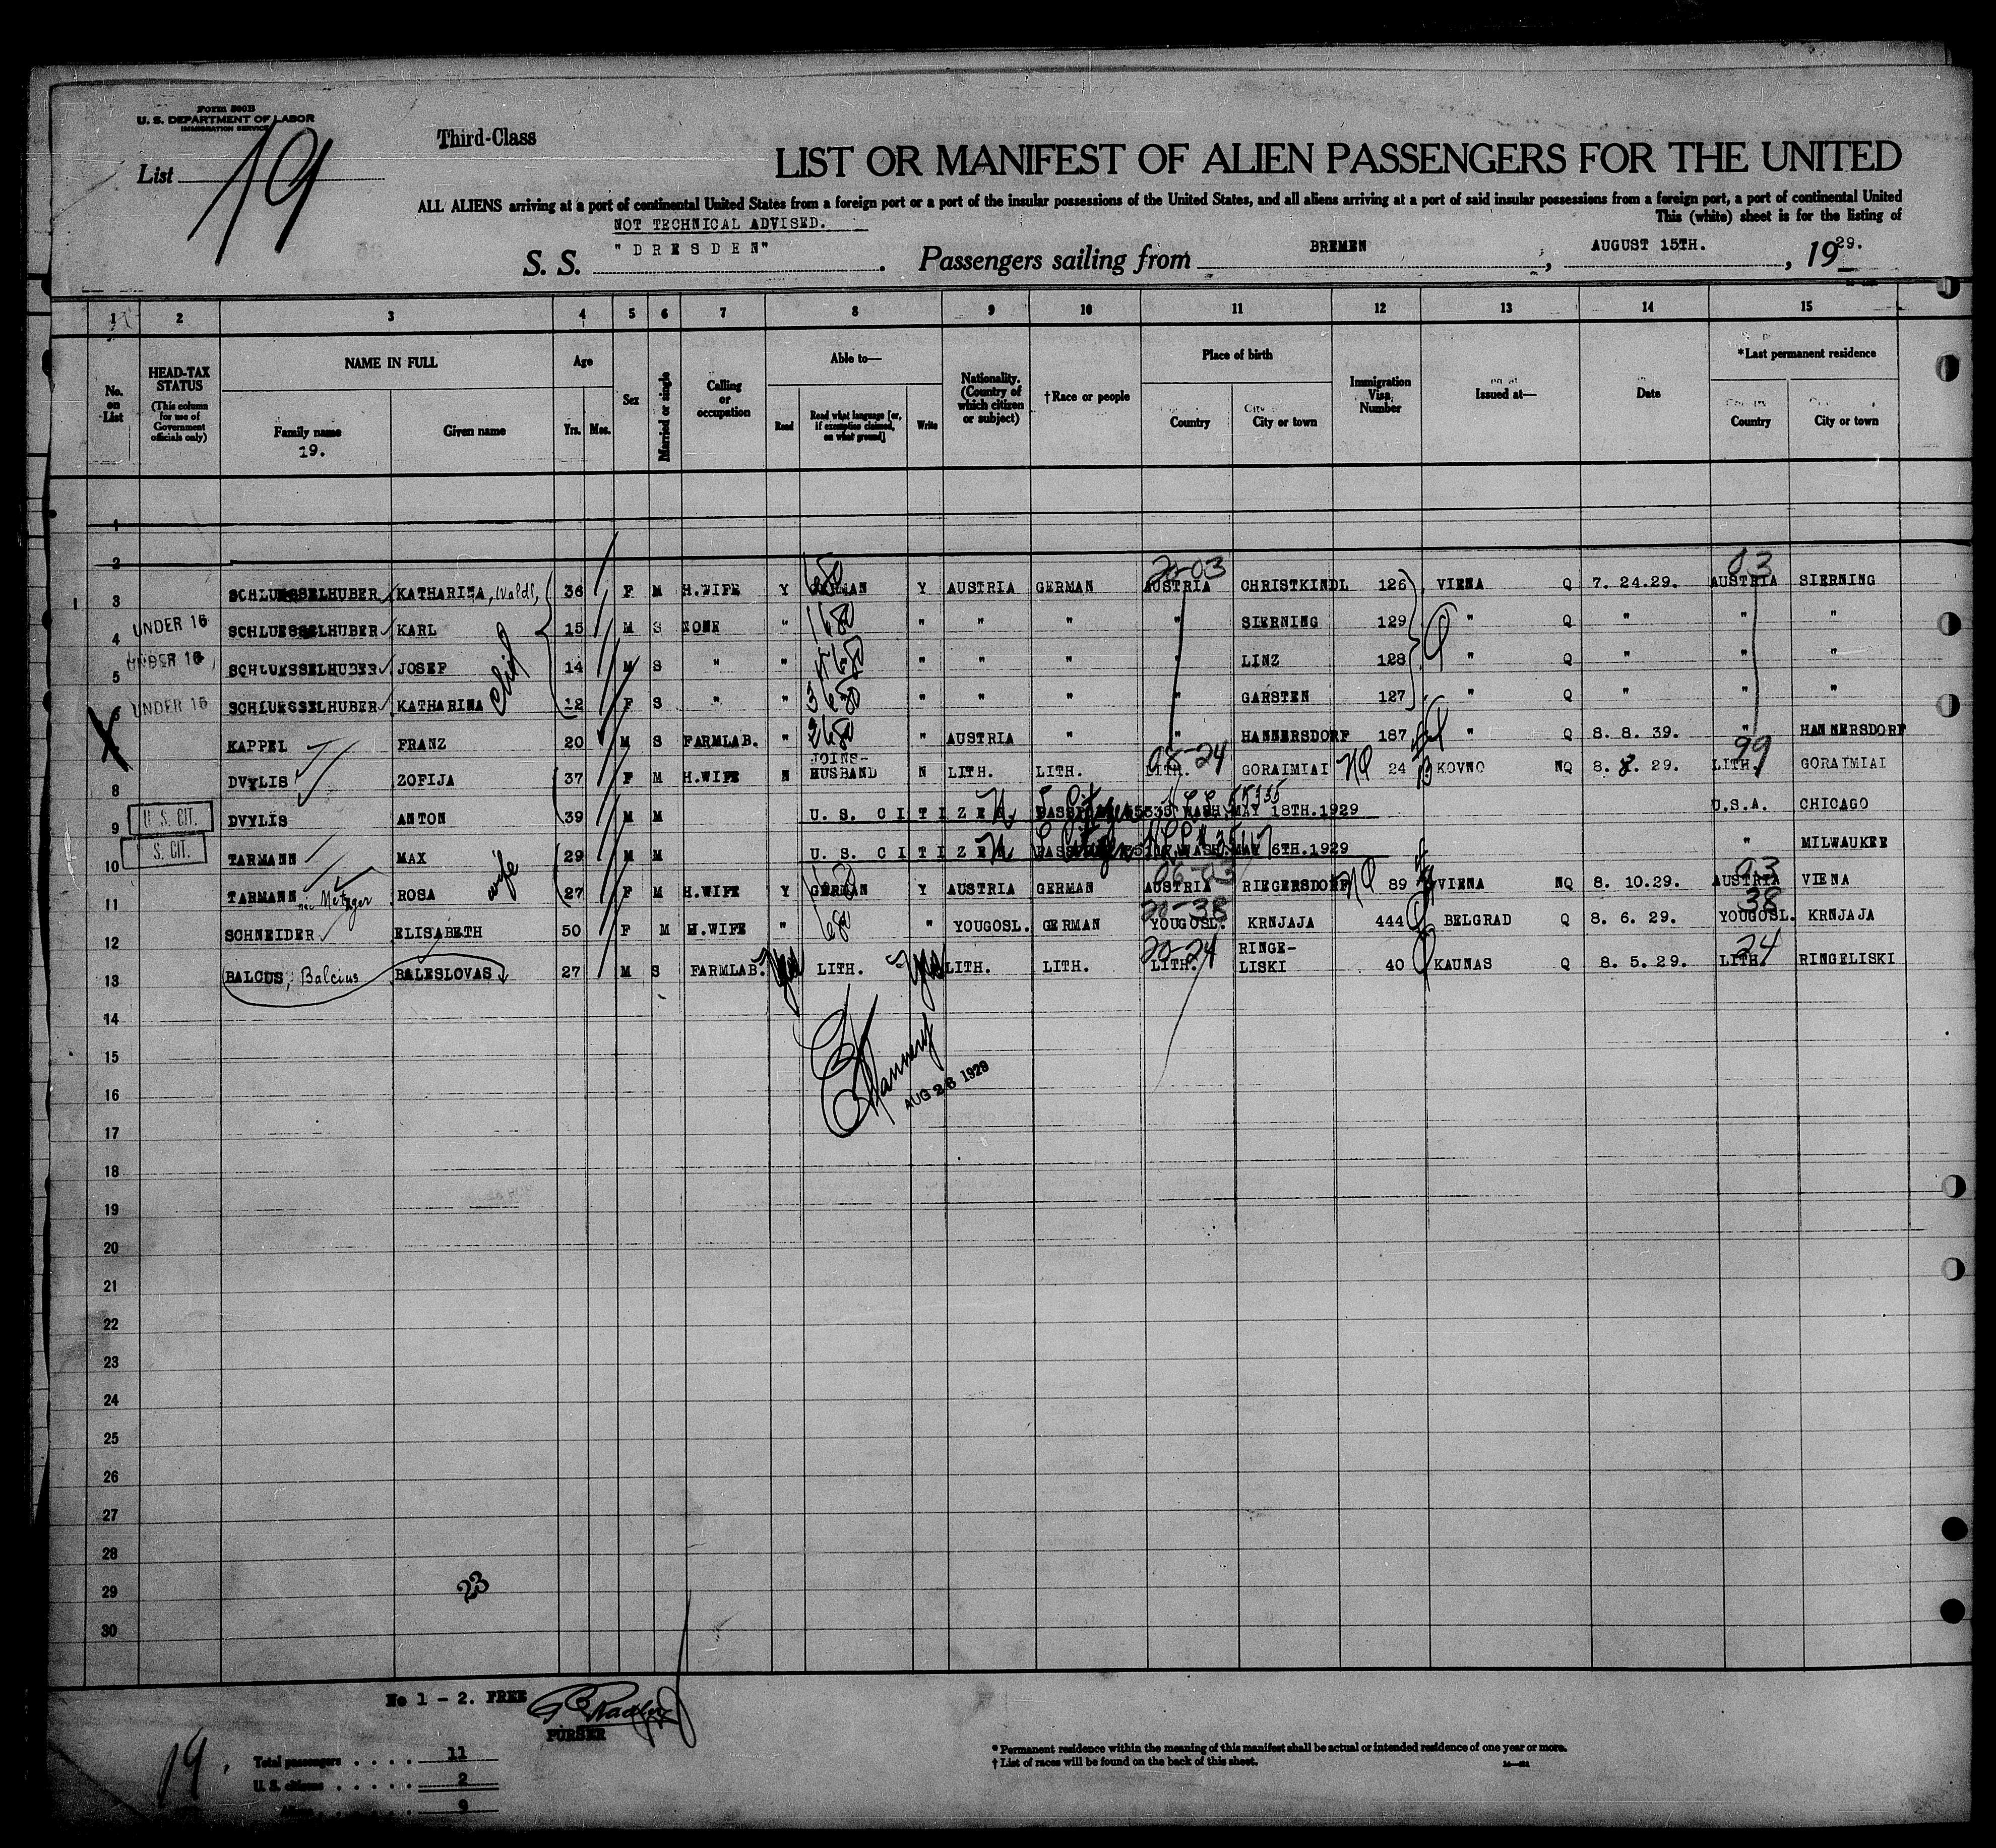 Form 500B
U. S. DEPARTMENT OF LABOR
IMMIGRATION SERVICE
Third-Class
List 19
LIST OR MANIFEST OF ALIEN PASSENGERS FOR THE UNITED
ALL ALIENS arriving at a port of continental United States from a foreign port or a port of the insular possessions of the United States, and all aliens arriving at a port of said insular possessions from a foreign port, a port of continental United
This (white) sheet is for the listing of
NOT TECHNICAL ADVISED.
S. S. "DRESDEN". Passengers sailing from BREMEN, AUGUST 15TH., 1929.
1 2 3 4 5 6 7 8 9 10 11 12 13 14 15
No. on List
HEAD-TAX STATUS (This column for use of Government officials only)
NAME IN FULL
Family name
19.
Given name
Age
Yrs. Mos.
Sex
Married or single
Calling or occupation
Able to—
Read
Read what language [or, if exemption claimed, on what ground]
Write
Nationality. (Country of which citizen or subject)
†Race or people
Place of birth
Country
City or town
Immigration Visa Number
Issued at—
Date
*Last permanent residence
Country
City or town
1
2
3 SCHLUESSELHUBER KATHARINA, (Waldl, 36 F M H.WIFE Y GERMAN Y AUSTRIA GERMAN AUSTRIA CHRISTKINDL 126 VIENA Q 7. 24.29. AUSTRIA SIERNING
4 UNDER 16 SCHLUESSELHUBER KARL 15 M S NONE " 168 " " " " SIERNING 129 " Q " " "
5 UNDER 16 SCHLUESSELHUBER JOSEF 14 M S " " " " " " LINZ 128 " Q " " "
6 UNDER 16 SCHLUESSELHUBER KATHARINA 12 F S " " " " " " GARSTEN 127 " Q " " "
KAPPEL FRANZ 20 M S FARMLAB. " " AUSTRIA " " HANNERSDORF 187 " Q 8. 8. 39. " HANNERSDORF
8 DVYLIS ZOFIJA 37 F M H.WIFE N JOINS-HUSBAND N LITH. LITH. LITH. 08-24 GORAIMIAI NQ 24 KOVNO NQ 8. 8. 29. LITH. 99 GORAIMIAI
9 U. S. CIT. DVYLIS ANTON 39 M M U. S. CITIZEN WASH. MAY 18TH.1929 U.S.A. CHICAGO
10 S. CIT. TARMANN MAX 29 M M U. S. CITIZEN WASH. MAY 6TH.1929 " MILWAUKEE
11 TARMANN nee Metzger ROSA wife 27 F M H.WIFE Y GERMAN Y AUSTRIA GERMAN AUSTRIA 06-03 RIEGERSDORF NQ 89 VIENA NQ 8. 10.29. AUSTRIA 03 VIENA
12 SCHNEIDER ELISABETH 50 F M H.WIFE " " YOUGOSL. GERMAN YOUGOSL. 20-38 KRNJAJA 444 BELGRAD Q 8. 6. 29. YOUGOSL. 38 KRNJAJA
13 BALCUS, Balcius BALESLOVAS 27 M S FARMLAB. Yes LITH. Yes LITH. LITH. LITH. 20-24 RINGE-LISKI 40 KAUNAS Q 8. 5. 29. LITH. 24 RINGELISKI
14
15
AUG 26 1929
16
17
18
19
20
21
22
23
24
25
26
27
28
29 23
30
No 1 - 2. FREE
PURSER
19.
Total passengers . . . . 11
U. S. citizens . . . . . 2
Aliens 9
* Permanent residence within the meaning of this manifest shall be actual or intended residence of one year or more.
† List of races will be found on the back of this sheet.